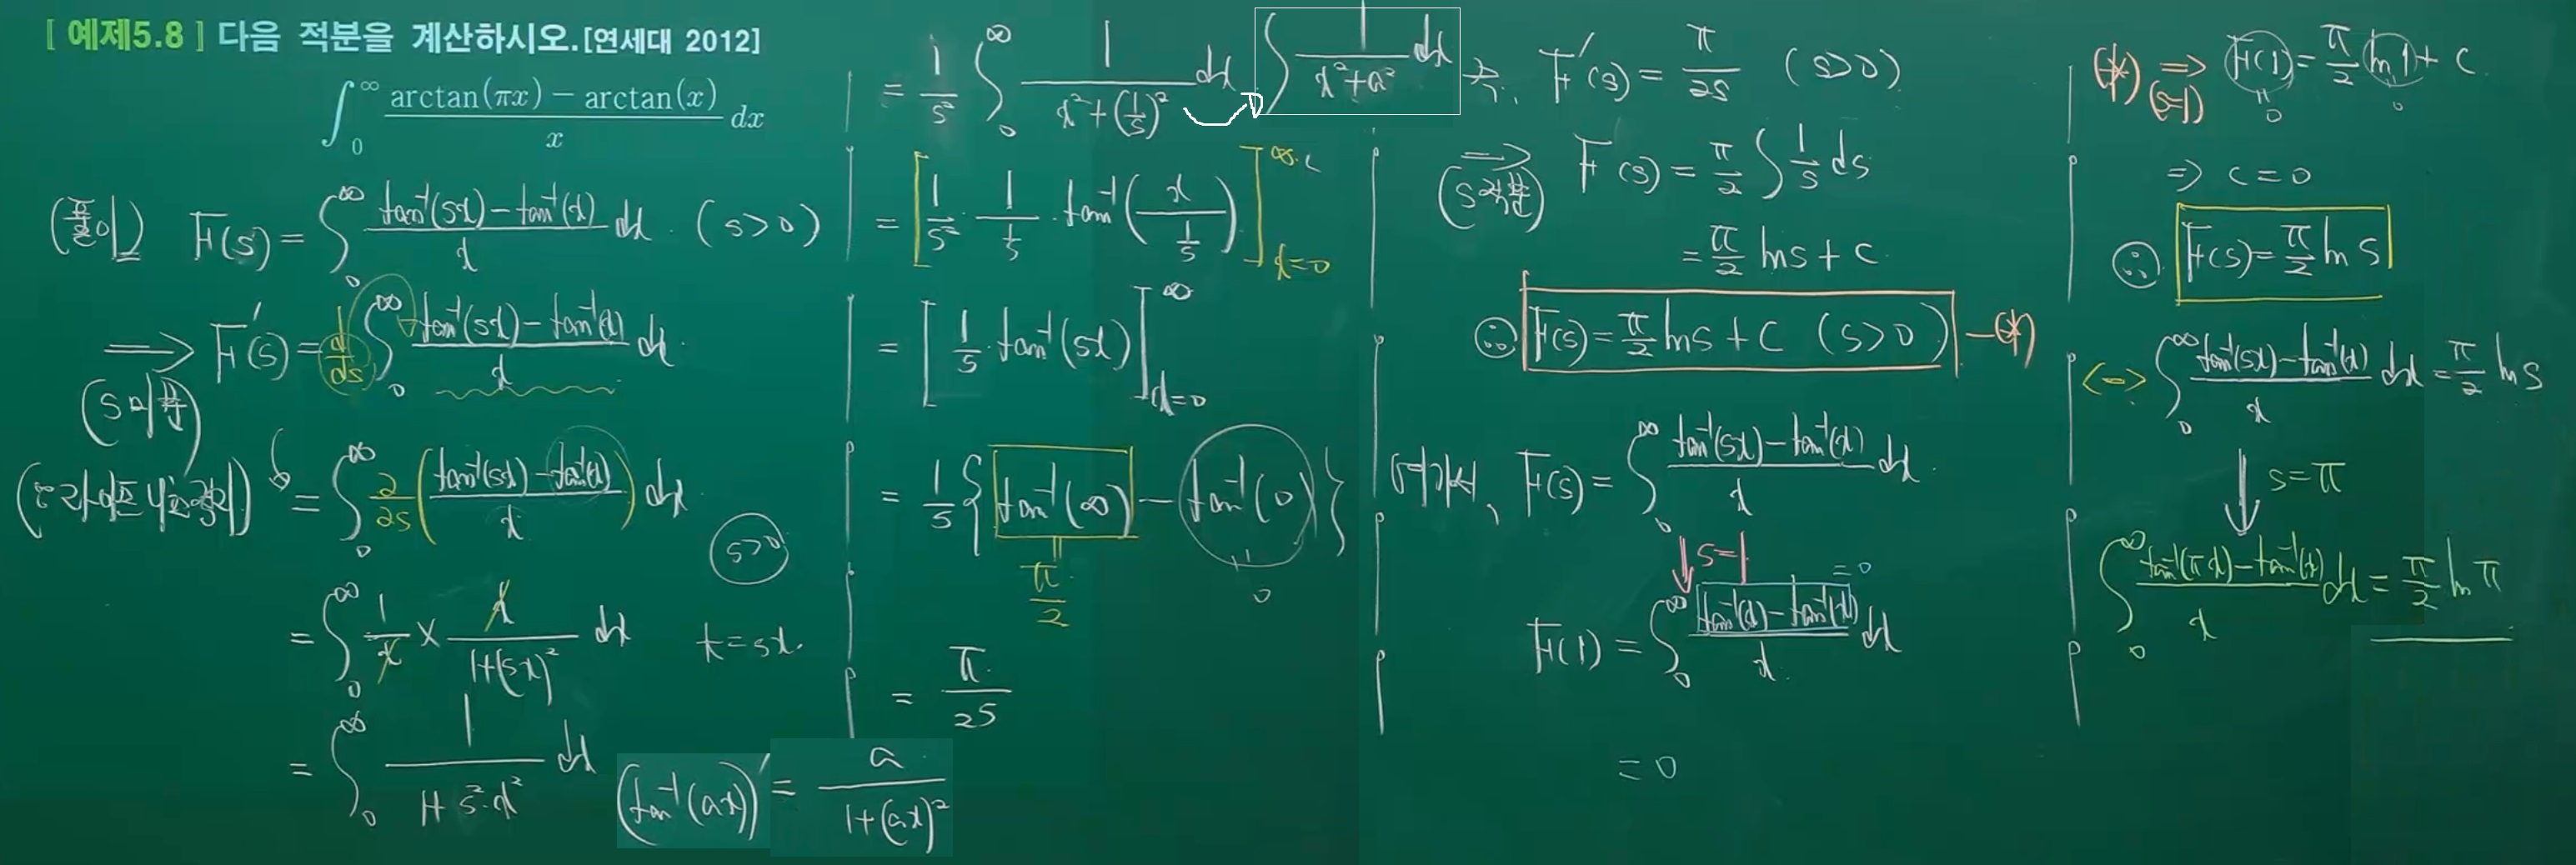 [ 예제5.8 ] 다음 적분을 계산하시오.[연세대 2012]
∫₀^∞ (arctan(πx) − arctan(x))/x dx
(풀이) F(s) = ∫₀^∞ (tan⁻¹(sx) − tan⁻¹(x))/x dx. (s>0)
⟹ (s미분) F′(s) = d/ds ∫₀^∞ (tan⁻¹(sx) − tan⁻¹(x))/x dx.
(라이프니츠 공식) = ∫₀^∞ ∂/∂s ((tan⁻¹(sx) − tan⁻¹(x))/x) dx
s>0
= ∫₀^∞ 1/x × x/(1+(sx)²) dx t=sx.
= ∫₀^∞ 1/(1+s²·x²) dx
(tan⁻¹(ax))′ = a/(1+(ax)²)
= 1/s² ∫₀^∞ 1/(x²+(1/s)²) dx
∫ 1/(x²+a²) dx
= [1/s² · 1/(1/s) · tan⁻¹(x/(1/s))]_{x=0}^{∞}
= [1/s · tan⁻¹(sx)]_{x=0}^{∞}
= 1/s {tan⁻¹(∞) − tan⁻¹(0)}
π/2
0
= π/2s
즉, F′(s) = π/2s (s>0)
⟹ (s적분) F(s) = π/2 ∫ 1/s ds
= π/2 ln s + c
∴ F(s) = π/2 ln s + C (s>0) −(*)
여기서, F(s) = ∫₀^∞ (tan⁻¹(sx) − tan⁻¹(x))/x dx.
↓ s=1
=0
F(1) = ∫₀^∞ (tan⁻¹(x) − tan⁻¹(x))/x dx
= 0
(*) ⟹ (s=1) F(1) = π/2 ln 1 + c
0
0
⇒ c=0
∴ F(s) = π/2 ln s
<=> ∫₀^∞ (tan⁻¹(sx) − tan⁻¹(x))/x dx = π/2 ln s
↓ s=π
∫₀^∞ (tan⁻¹(πx) − tan⁻¹(x))/x dx = π/2 ln π